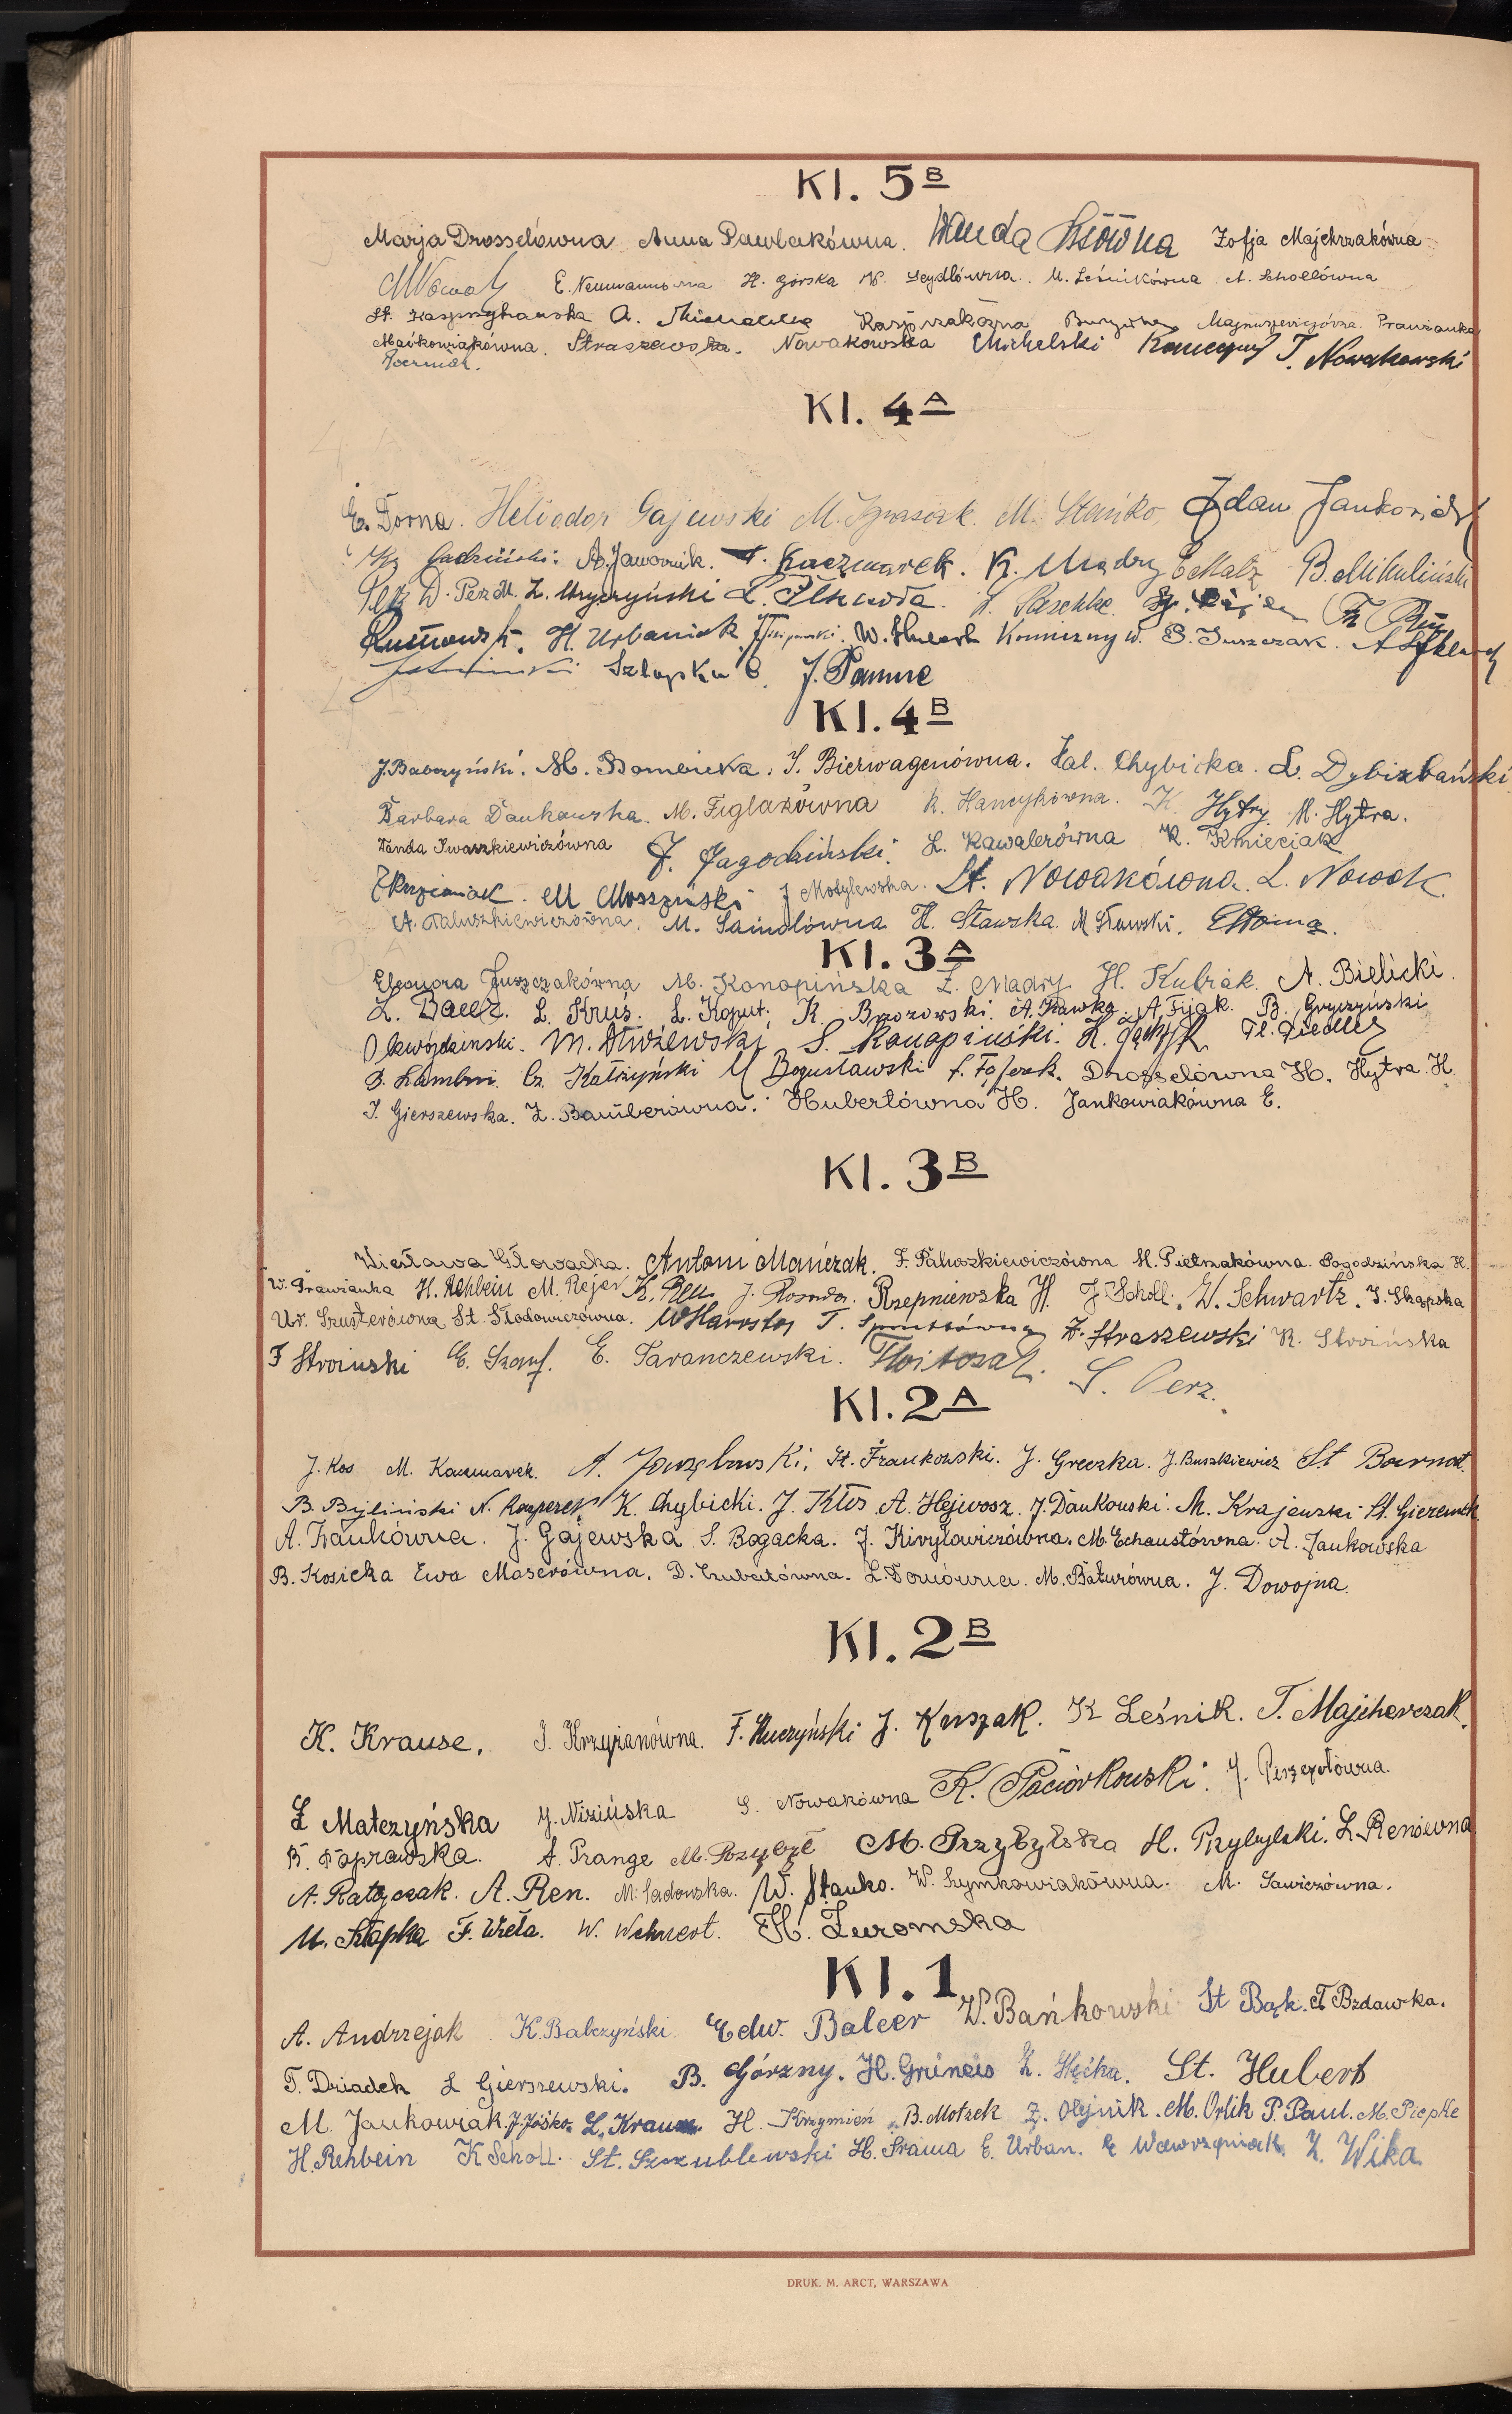 Kl. 5 B
Marja Drosselówna Anna Pawlakówna. Wanda Zofja Majchrzakówna
M Nowak E. Neumannówna H. Górska W. Seydlówna. M. Leśnikówna A. Schollówna
St. A. Kasprzakówna Magnuszewiczówna. Prawianka
Maćkowiakówna. Straszewska. Nowakowska Michelski T. Nowakowski
Kl. 4 A
E. Dorna. Heliodor Gajewski M. Ignasiak. M. Stańko, Jankowiak
A. Jawornik. Kaczmarek. K. Mądry E Malz B. Mikuliński
D. Perz M. Z. Mryczyński L. P. Paschke.
H. Urbaniak W. Hubert Komiczny W. S. Juszczak.
Szlapka C. J. Pamme
Kl. 4 B
J. Babczyński. M. Dombicka. I. Bierwagenówna. Hal. Chybicka. L. Dybizbański
Barbara Dankowska. M. Figlakówna R. Hancykówna. K. Hytry M. Hytra.
Wanda Iwaszkiewiczówna J. Jagodziński. L. Kawalerówna K. Kmieciak
M Moszyński J Motylewska. St. Nowakówna. L. Nowak
A. Paluszkiewiczówna. M. Saindlówna H. Stawska. M Stawski.
Kl. 3 A
Eleonora Juszczakówna M. Konopińska Z. Mądry H. Kubiak. A. Bielicki.
L. Balcer. L. Kruś. L. Koput. K. Brzozowski. A. Kawka A. Fijak. B. Gryczyński
M. Dłużewski S. Konopiński. Fl. Giedler
B. Kambui. Cz. Katrzyński M Bogusławski Drosselówna H. Hytra H.
I. Gierszewska. Z. Bamberówna. Hubertówna H. Jankowiakówna E.
Kl. 3 B
Wiesława Głowacka. Antoni Mańczak. F. Paluszkiewiczówna M. Pietrzakówna. Pogodzińska H.
W. Prawianka H. Rehbein M. Rejer K. Ren J. Rosada. Rzepniewska H. J Scholl. W. Schwartz. I. Skąpska
Ur. Szusterówna St. Słodowiczówna. W Starosta T. Z. Straszewski K. Stroińska
F Stroinski E. Szarf. E. Taranczewski. S. Perz.
Kl. 2 A
J. Kos M. Kaczmarek. A. St. Frankowski. J. Greczka. J. Buszkiewicz St. Biernat
B. Byliński N. Kasperek K. Chybicki. J. Kłos A. Hejwosz. J. Dankowski. M. Krajewski St. Gierczak
A. Frankówna. J. Gajewska S. Bogacka. J. Kiryłowiczówna. M. Echaustówna. A. Jankowska
B. Kosicka Ewa Maserówna. D. Czubatówna. L. Domówna. M. Baturówna. J. Dowojna.
Kl. 2 B
K. Krause. I. Krzyżanówna. F. Kuczyński J. Kuszak. K Leśnik. T. Majcherczak.
L Matczyńska J. Nizińska S. Nowakówna K. Paciorkowski. J. Pierzepiotówna.
B. Poprawska. A. Prange M. Przybył M. Przybylska H. Przybylski. L. Renówna
A. Ratajczak. A. Ren. M. Sadowska. W. Stanko. W. Szymkowiakówna. M. Sawiczówna.
M. Słapka F. Wieła. W. Wehnert. H. Żuromska
Kl. 1
A. Andrzejak K. Babczyński. Edw. Balcer W. Bańkowski St Bąk. T Bzdawka.
T. Dziadek L Gierszewski. B. Górzny. H. Gruneis Z. Hęćka. St. Hubert
M. Jankowiak. J. Jośko. L. Kraum H. Krzymień B. Motzek Z. Olejnik. M. Orlik P. Paul. M. Piepke
H. Rehbein K Scholl. St. Szczublewski H. Srama E. Urban. E Wawrzyniak. Z. Wika
DRUK. M. ARCT, WARSZAWA